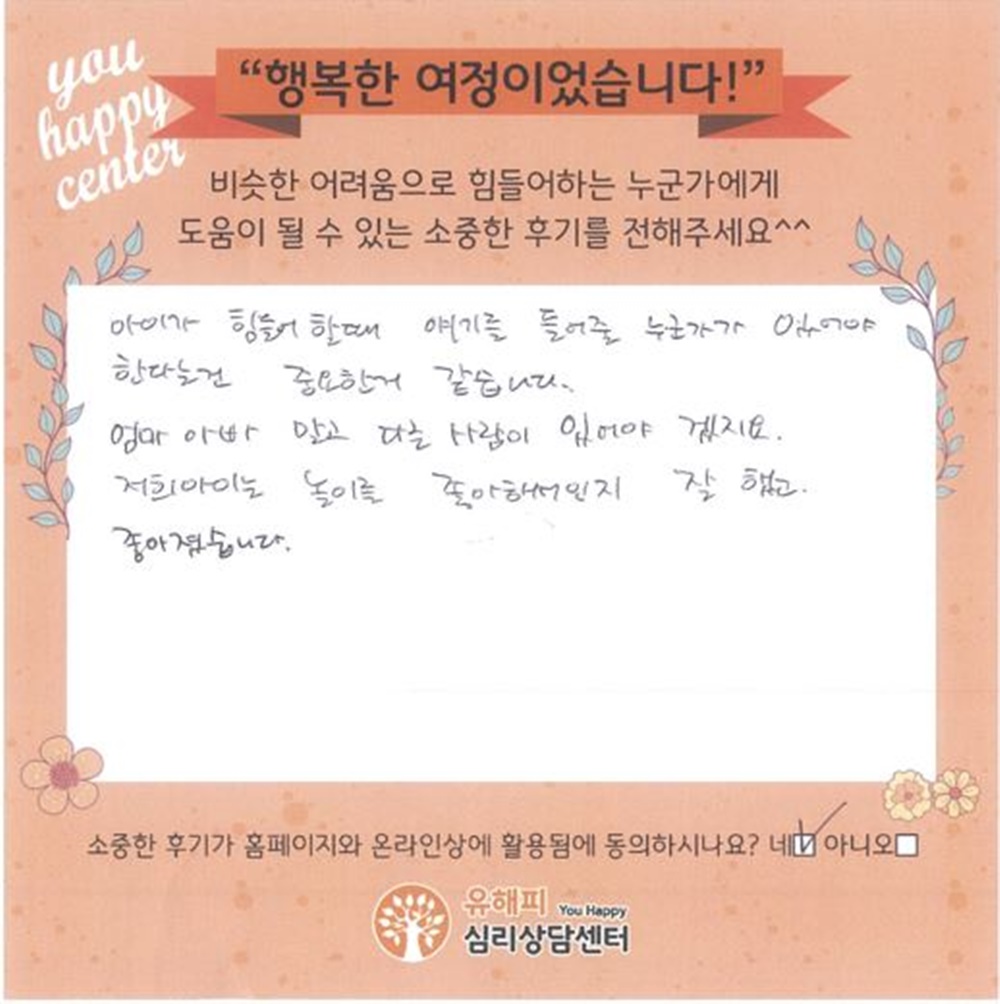 you
happy
center
“행복한 여정이었습니다!”
비슷한 어려움으로 힘들어하는 누군가에게
도움이 될 수 있는 소중한 후기를 전해주세요^^
아이가 힘들어 할때 얘기를 들어줄 누군가가 있어야
한다는건 중요한거 같습니다.
엄마 아빠 말고 다른 사람이 있어야 겠지요.
저희아이는 놀이를 좋아해서인지 잘 했고.
좋아졌습니다.
소중한 후기가 홈페이지와 온라인상에 활용됨에 동의하시나요? 네☑ 아니오☐
유해피 You Happy
심리상담센터